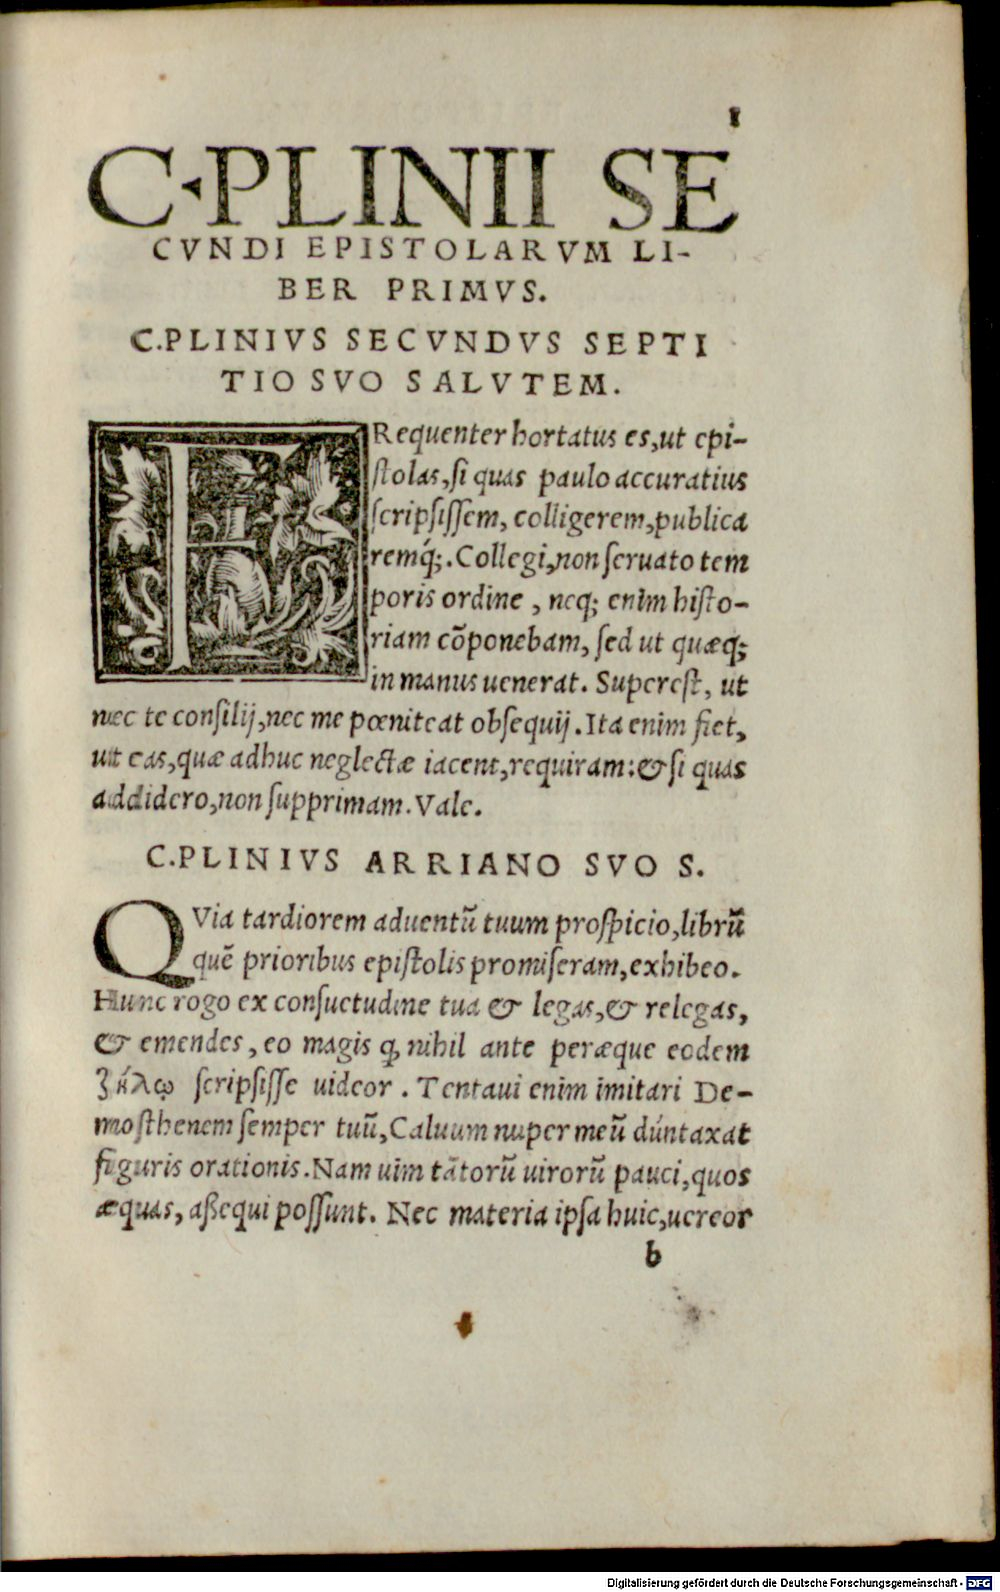 1
C·PLINII SE
CVNDI EPISTOLARVM LI-
BER PRIMVS.
C.PLINIVS SECVNDVS SEPTI
TIO SVO SALVTEM.
FRequenter hortatus es,ut epi-
ſtolas,ſi quas paulo accuratius
ſcripſiſſem, colligerem,publica
remq́;. Collegi,non ſeruato tem
poris ordine , neq; enim hiſto-
riam cōponebam, ſed ut quæq;
in manus uenerat. Supereſt, ut
nec te conſilij,nec me pœniteat obſequij. Ita enim fiet,
ut eas,quæ adhuc neglectæ iacent,requiram:& ſi quas
addidero,non ſupprimam. Vale.
C.PLINIVS ARRIANO SVO S.
QVia tardiorem aduentũ tuum proſpicio,librũ
quẽ prioribus epiſtolis promiſeram,exhibeo.
Hunc rogo ex conſuetudine tua & legas,& relegas,
& emendes, eo magis q̃ nihil ante peræque eodem
ζήλῳ ſcripſiſſe uideor . Tentaui enim imitari De-
moſthenem ſemper tuũ,Caluum nuper meũ dúntaxat
figuris orationis. Nam uim tātorũ uirorũ pauci,quos
æquas, aßequi poſſunt. Nec materia ipſa huic,uereor
b
Digitalisierung gefördert durch die Deutsche Forschungsgemeinschaft - DFG